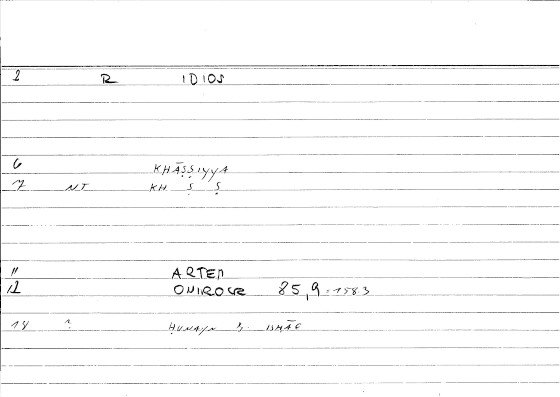 1 R IDIOS
6 KHĀṢṢIYYA
7 NT KH Ṣ Ṣ
11 ARTEM
12 ONIROCR 85,9 = 1583
18 ḤUNAYN B. ISḤĀQ